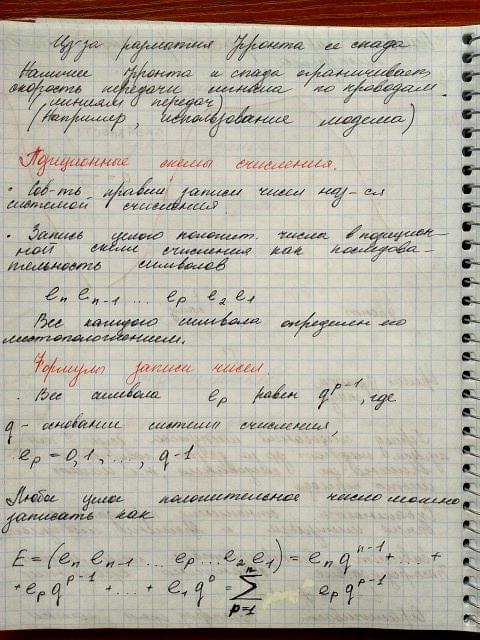 Из-за размытия фронта ее спада
Наличие фронта и спада ограничивает
скорость передачи сигнала по проводам
(линиям передач)
(Например, использование модема)
Позиционные схемы счисления.
· Сов-ть правил записи чисел наз-ся
системой счисления.
· Запись целого полож. числа в позицион-
ной схеме счисления как последова-
тельность символов
eₙ eₙ₋₁ ... eₚ e₂ e₁
Вес каждого символа определен его
местоположением.
Формулы записи чисел.
· Вес символа eₚ равен qᵖ⁻¹, где
q - основание системы счисления,
eₚ = 0, 1, ..., q-1
Любое целое положительное число можно
записать как
E = (eₙ eₙ₋₁ ... eₚ ... e₂ e₁) = eₙ qⁿ⁻¹ + ... +
+ eₚ qᵖ⁻¹ + ... + e₁ q⁰ = ∑ₚ₌₁ⁿ eₚ qᵖ⁻¹